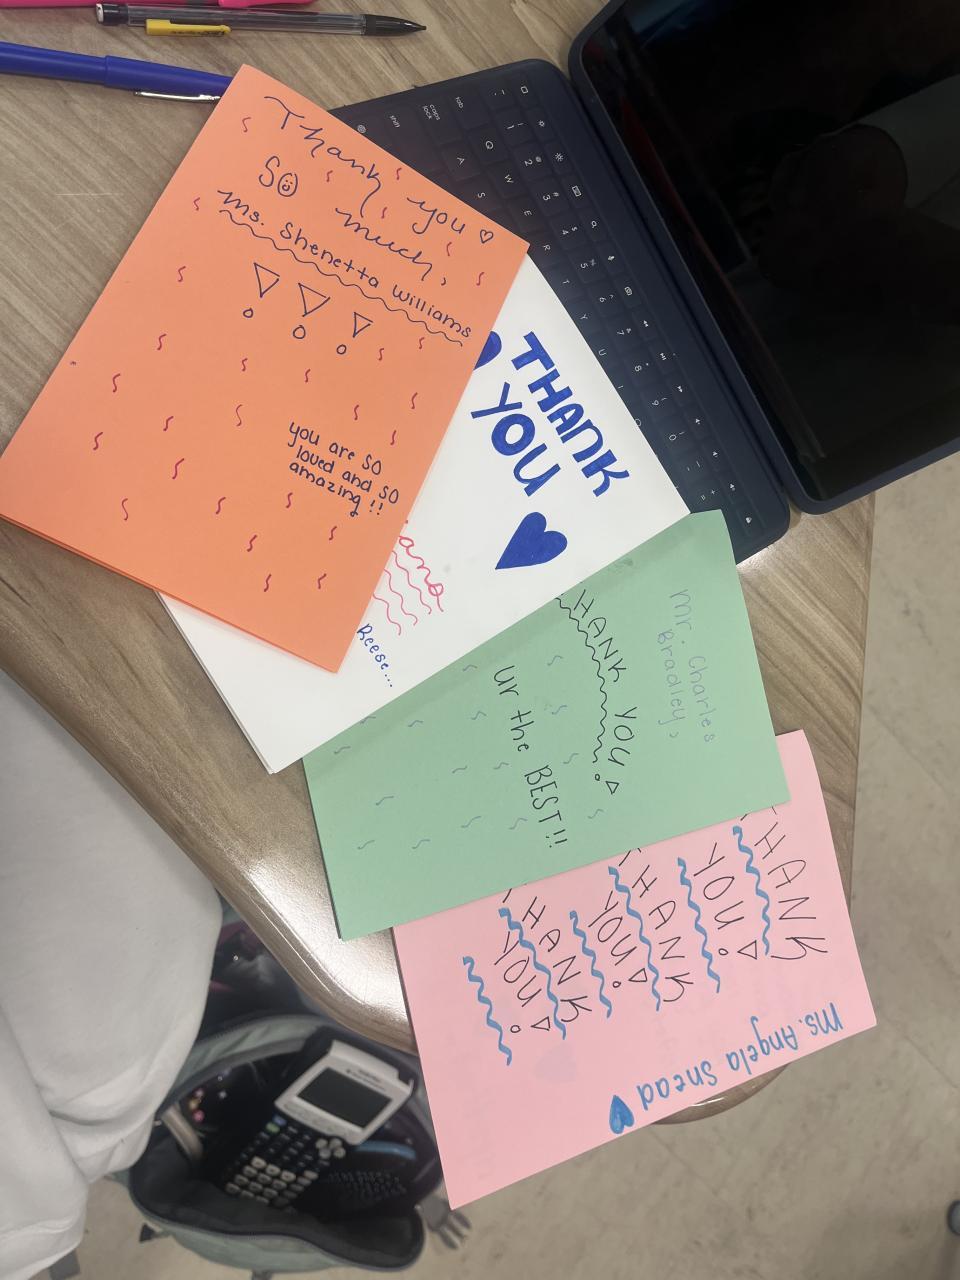 Thank you
SO much,
Ms. Shenetta Williams
!!!
you are SO
loved and SO
amazing!!
THANK
YOU
Reese...
Mr. Charles
Bradley,
THANK YOU!
ur the BEST!!
THANK
YOU!
THANK
YOU!
THANK
YOU!
Ms. Angela Snead
tab
caps
lock
shift
Q
W
E
R
T
Y
U
A
S
1
2
3
4
5
6
7
8
9
0